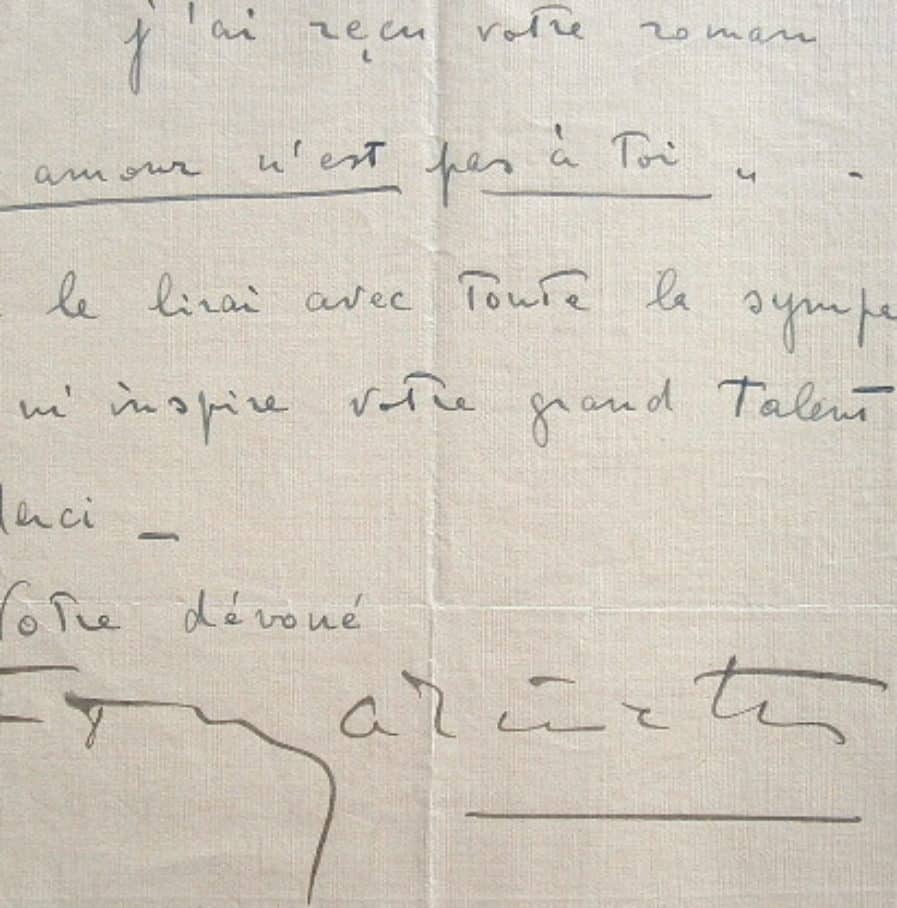 j'ai reçu votre roman
amour n'est pas à Toi " -
le lirai avec Toute la sympa
m'inspire votre grand Talent
erci _
Votre dévoué